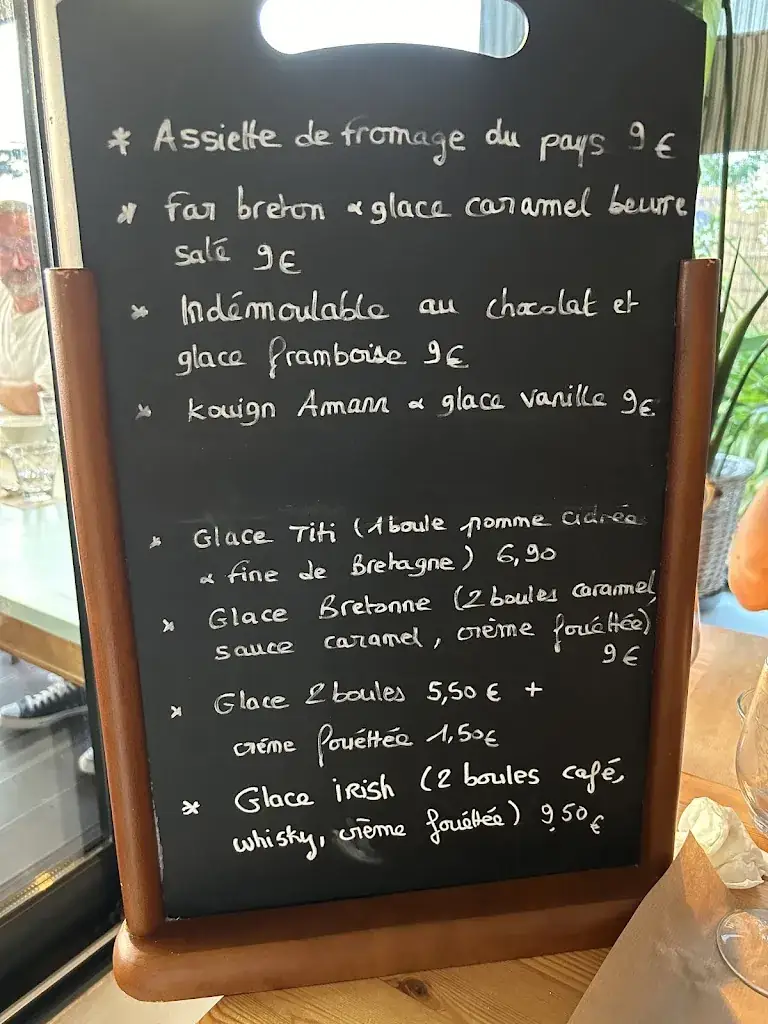 * Assiette de fromage du pays 9 €
* far breton & glace caramel beurre
salé 9€
* Indémoulable au chocolat et
glace framboise 9€
* Kouign Amann & glace vanille 9€
* Glace Titi (1 boule pomme cidrée
& fine de Bretagne) 6,90
* Glace Bretonne (2 boules caramel,
sauce caramel, crème fouéttée)
9€
* Glace 2 boules 5,50 € +
crème fouéttée 1,50€
* Glace irish (2 boules café,
whisky, crème fouéttée) 9,50€